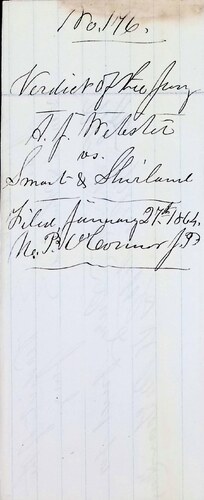 No. 176.
Verdict of the Jury
A. J. Webster
vs.
Smart & Shirland
Filed January 27th 1864.
P. O'Connor J P